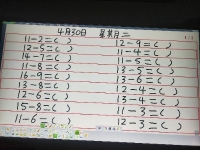 4月30日 星期二
11-2=( )
12-5=( )
14-7=( )
11-8=( )
16-9=( )
13-8=( )
12-6=( )
15-8=( )
11-6=( )
12-9=( )
11-4=( )
11-5=( )
13-5=( )
13-6=( )
12-4=( )
13-4=( )
11-3=( )
12-3=( )